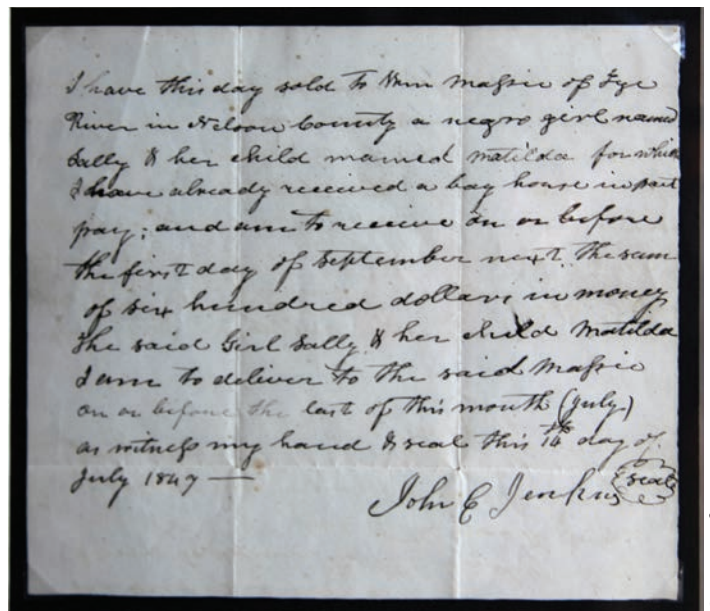 I have this day sold to Wm Massie of Tye
River in Nelson County a negro girl named
Sally & her child named Matilda for which
I have already received a bay horse in part
pay; and am to receive on or before
the first day of September next the sum
of six hundred dollars in money
The said Girl Sally & her child Matilda
I am to deliver to the said Massie
on or before the last of this month (July)
as witness my hand & seal this 14th day of
July 1847 —
John C Jenkins (seal)